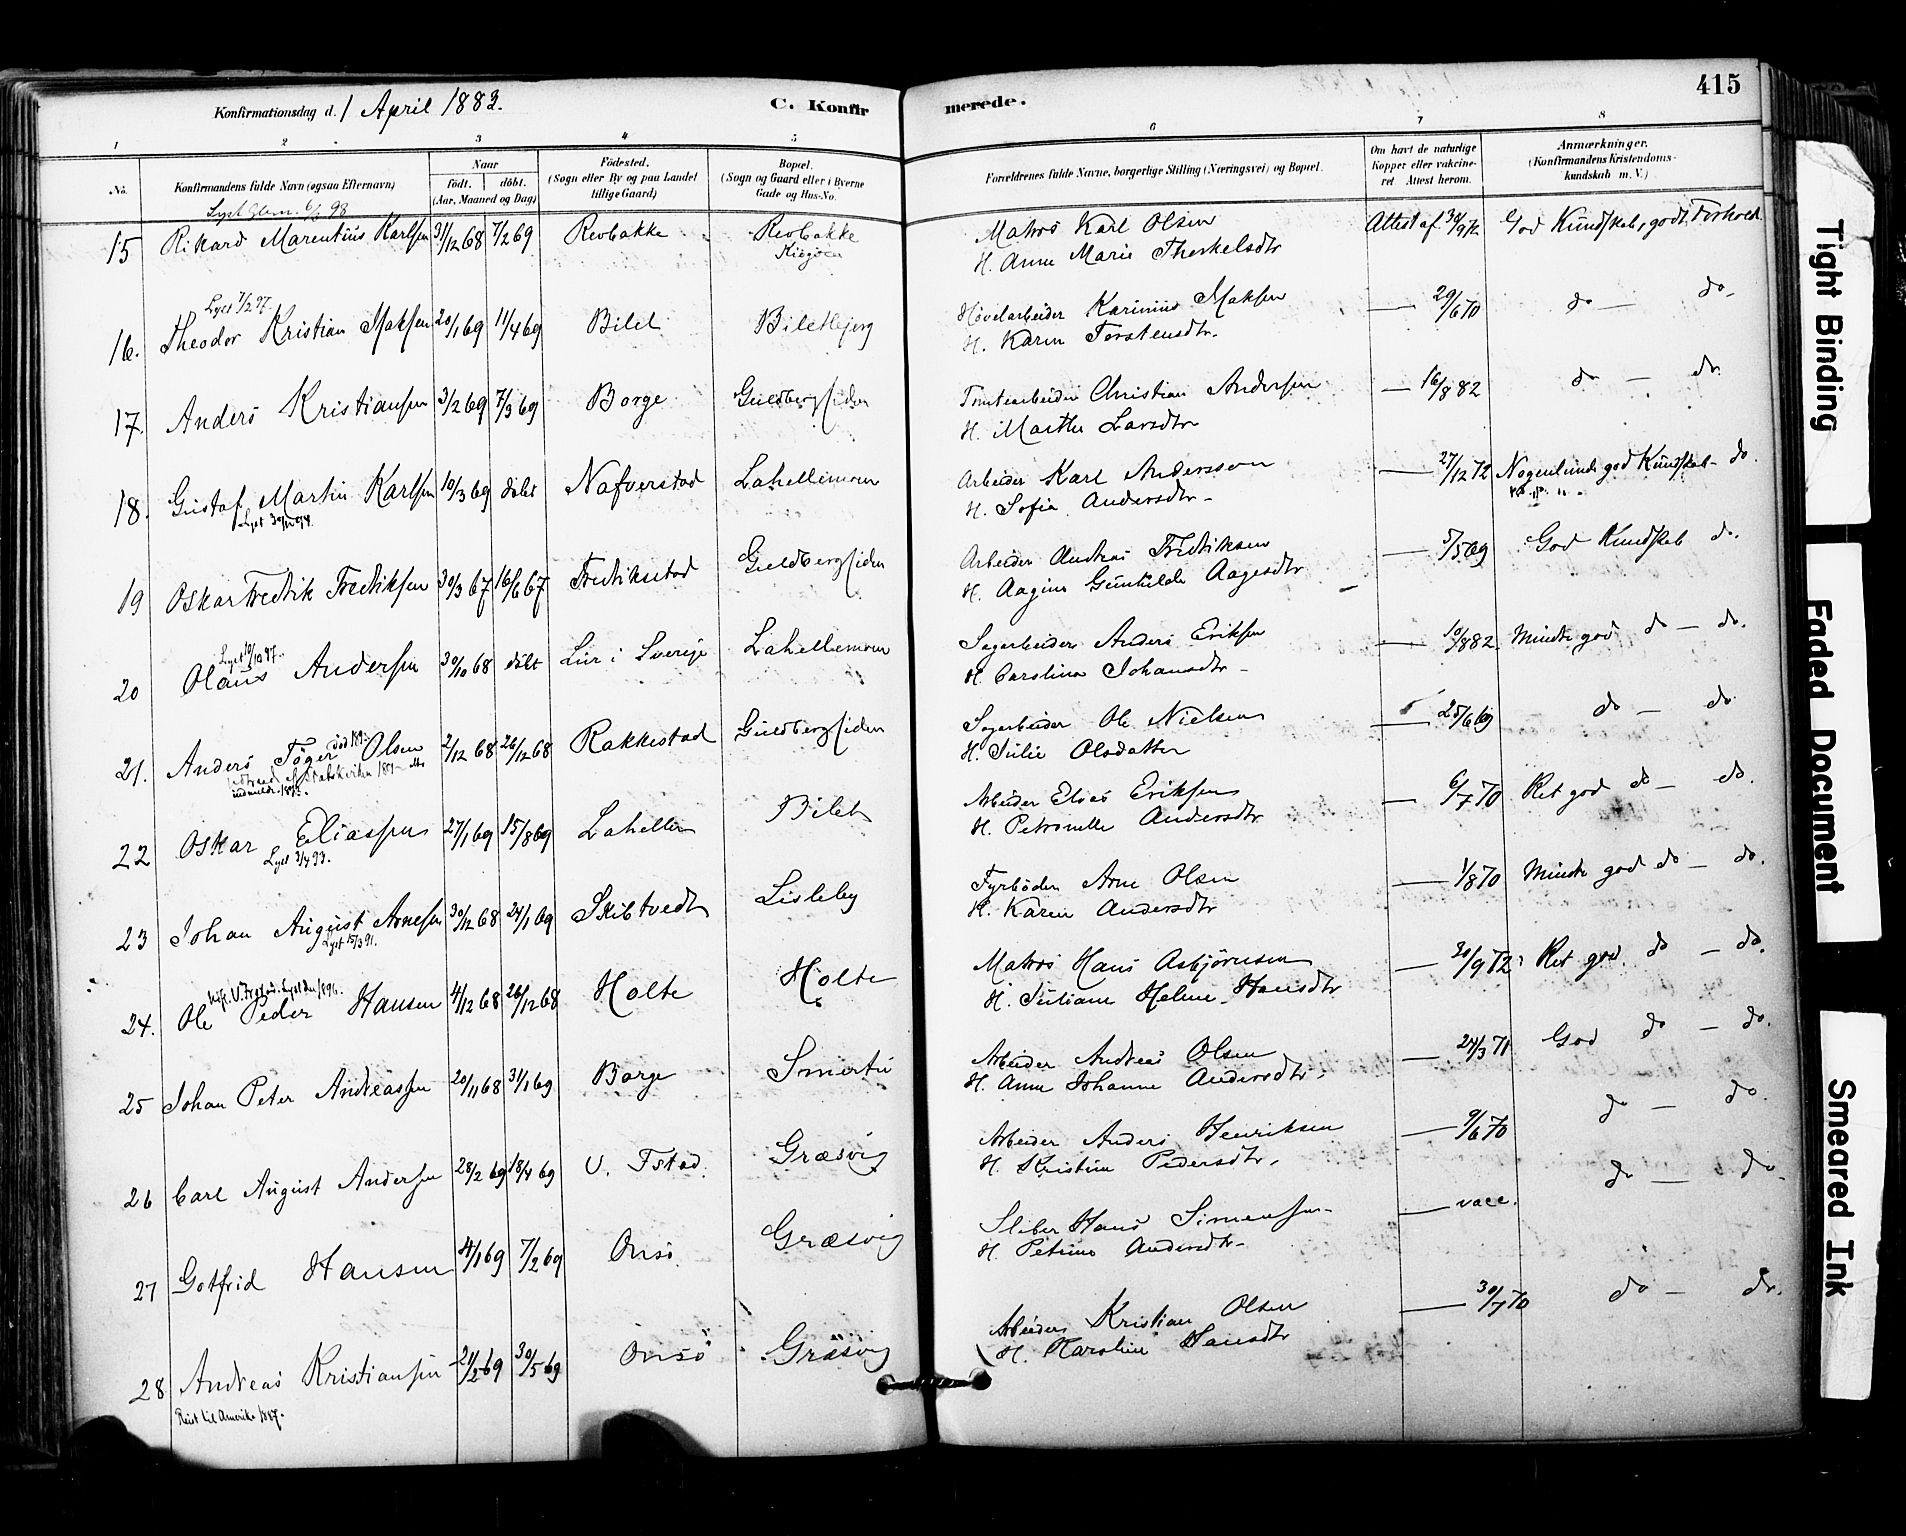 415
Konfirmationsdag d. 1 April 1883.
C. Konfirmerede.
1 2 3 4 5 6 7 8
No.
Konfirmandens fulde Navn (ogsaa Efternavn)
Naar
födt. döbt.
(Aar, Maaned og Dag)
Födested.
(Sogn eller By og paa Landet
tillige Gaard)
Bopæl.
(Sogn og Gaard eller i Byerne
Gade og Hus-No.
Forældrenes fulde Navne, borgerlige Stilling (Næringsvei) og Bopæl.
Om havt de naturlige
Kopper eller vakcine-
ret Attest herom.
Anmærkninger.
(Konfirmandens Kristendoms-
kundskab m. V.)
Lyst Glem. 6/2 98
15 Rikard Marentius Karlsen 31/12 68 7/2 69 Revbakke Revbakke Matros Karl Olsen Attest af God Kundskab, godt Forhold
H. Anne Marie Therkelsdtr
Lyst 7/2 97
16. Theodor Kristian Maksen 20/1 69 11/4 69 Bilet Biletbjerg Høvelarbeider Karinius Maksen — 29/6 70 do — do
H. Karen Torstensdtr.
17. Anders Kristiansen 3/2 69 7/3 69 Borge Guldbergsiden Tomtearbeider Christian Andersen — 16/8 82 do — do
H. Marthe Larsdtr
18. Gustaf Martin Karlsen 10/3 69 døbt Nafverstad Lahellemoen Arbeider Karl Andersson — 27/12 72 Nogenlunde god Kundskab - do.
H. Sofia Andersdtr -
19 Oskar Fredrik Fredriksen 30/3 67 16/6 67 Fredrikstad Guldbergsiden Arbeider Andreas Fredriksen — 5/5 69 God Kundskab do.
H. Aagine Gunhilde Aagesdtr
Lyst 10/10 97.
20 Olaus Andersen 30/10 68 døbt Lur i Sverije Lahellemoen Sagarbeider Anders Eriksen — 10/8 82 Mindre god do — do.
H. Carolina Johansdtr -
21. Anders Töger Olsen 2/12 68 26/12 68 Rakkestad Guldbergsiden Sagarbeider Ole Nielsen — 25/6 69 do — do
H. Julie Olsdatter
22 Oskar Eliassen 27/1 69 15/8 69 Lahellen Bilet Arbeider Elias Eriksen — 6/7 70 Ret god do — do.
Lyst 3/4 93.
H. Petronelle Andersdtr
23 Johan August Arnesen 30/12 68 24/1 69 Skibtvedt Lisleby Fyrbøder Arne Olsen — 1/8 70 Mindre god do — do.
Lyst 15/3 91.
H. Karen Andersdtr
24. Ole Peder Hansen 4/12 68 26/12 68 Holte Holte Matros Hans Asbjørnsen — 20/9 72 Ret god do — do.
H. Juliane Helene Hansdtr
25 Johan Peter Andreassen 20/11 68 31/1 69 Borge Smertu Arbeider Andreas Olsen — 24/3 71 God do — do.
H. Anne Johanne Andersdtr.
26 Carl August Andersen 28/2 69 18/4 69 V. Fstad. Græsvig Arbeider Anders Henriksen — 9/6 70 do — do.
H. Kristine Pedersdtr.
27 Gotfrid Hansen 4/1 69 7/2 69 Onsö. Græsvig Sliber Hans Simensen — vacc. do — do
H. Petrine Andersdtr -
28 Andreas Kristiansen 21/2 69 30/5 69 Onsö Græsvig Arbeider Kristian Olsen — 30/7 70 do — do.
Reist til Amerika 1887.
H. Karoline Hansdtr
Tight Binding
Faded Document
Smeared Ink